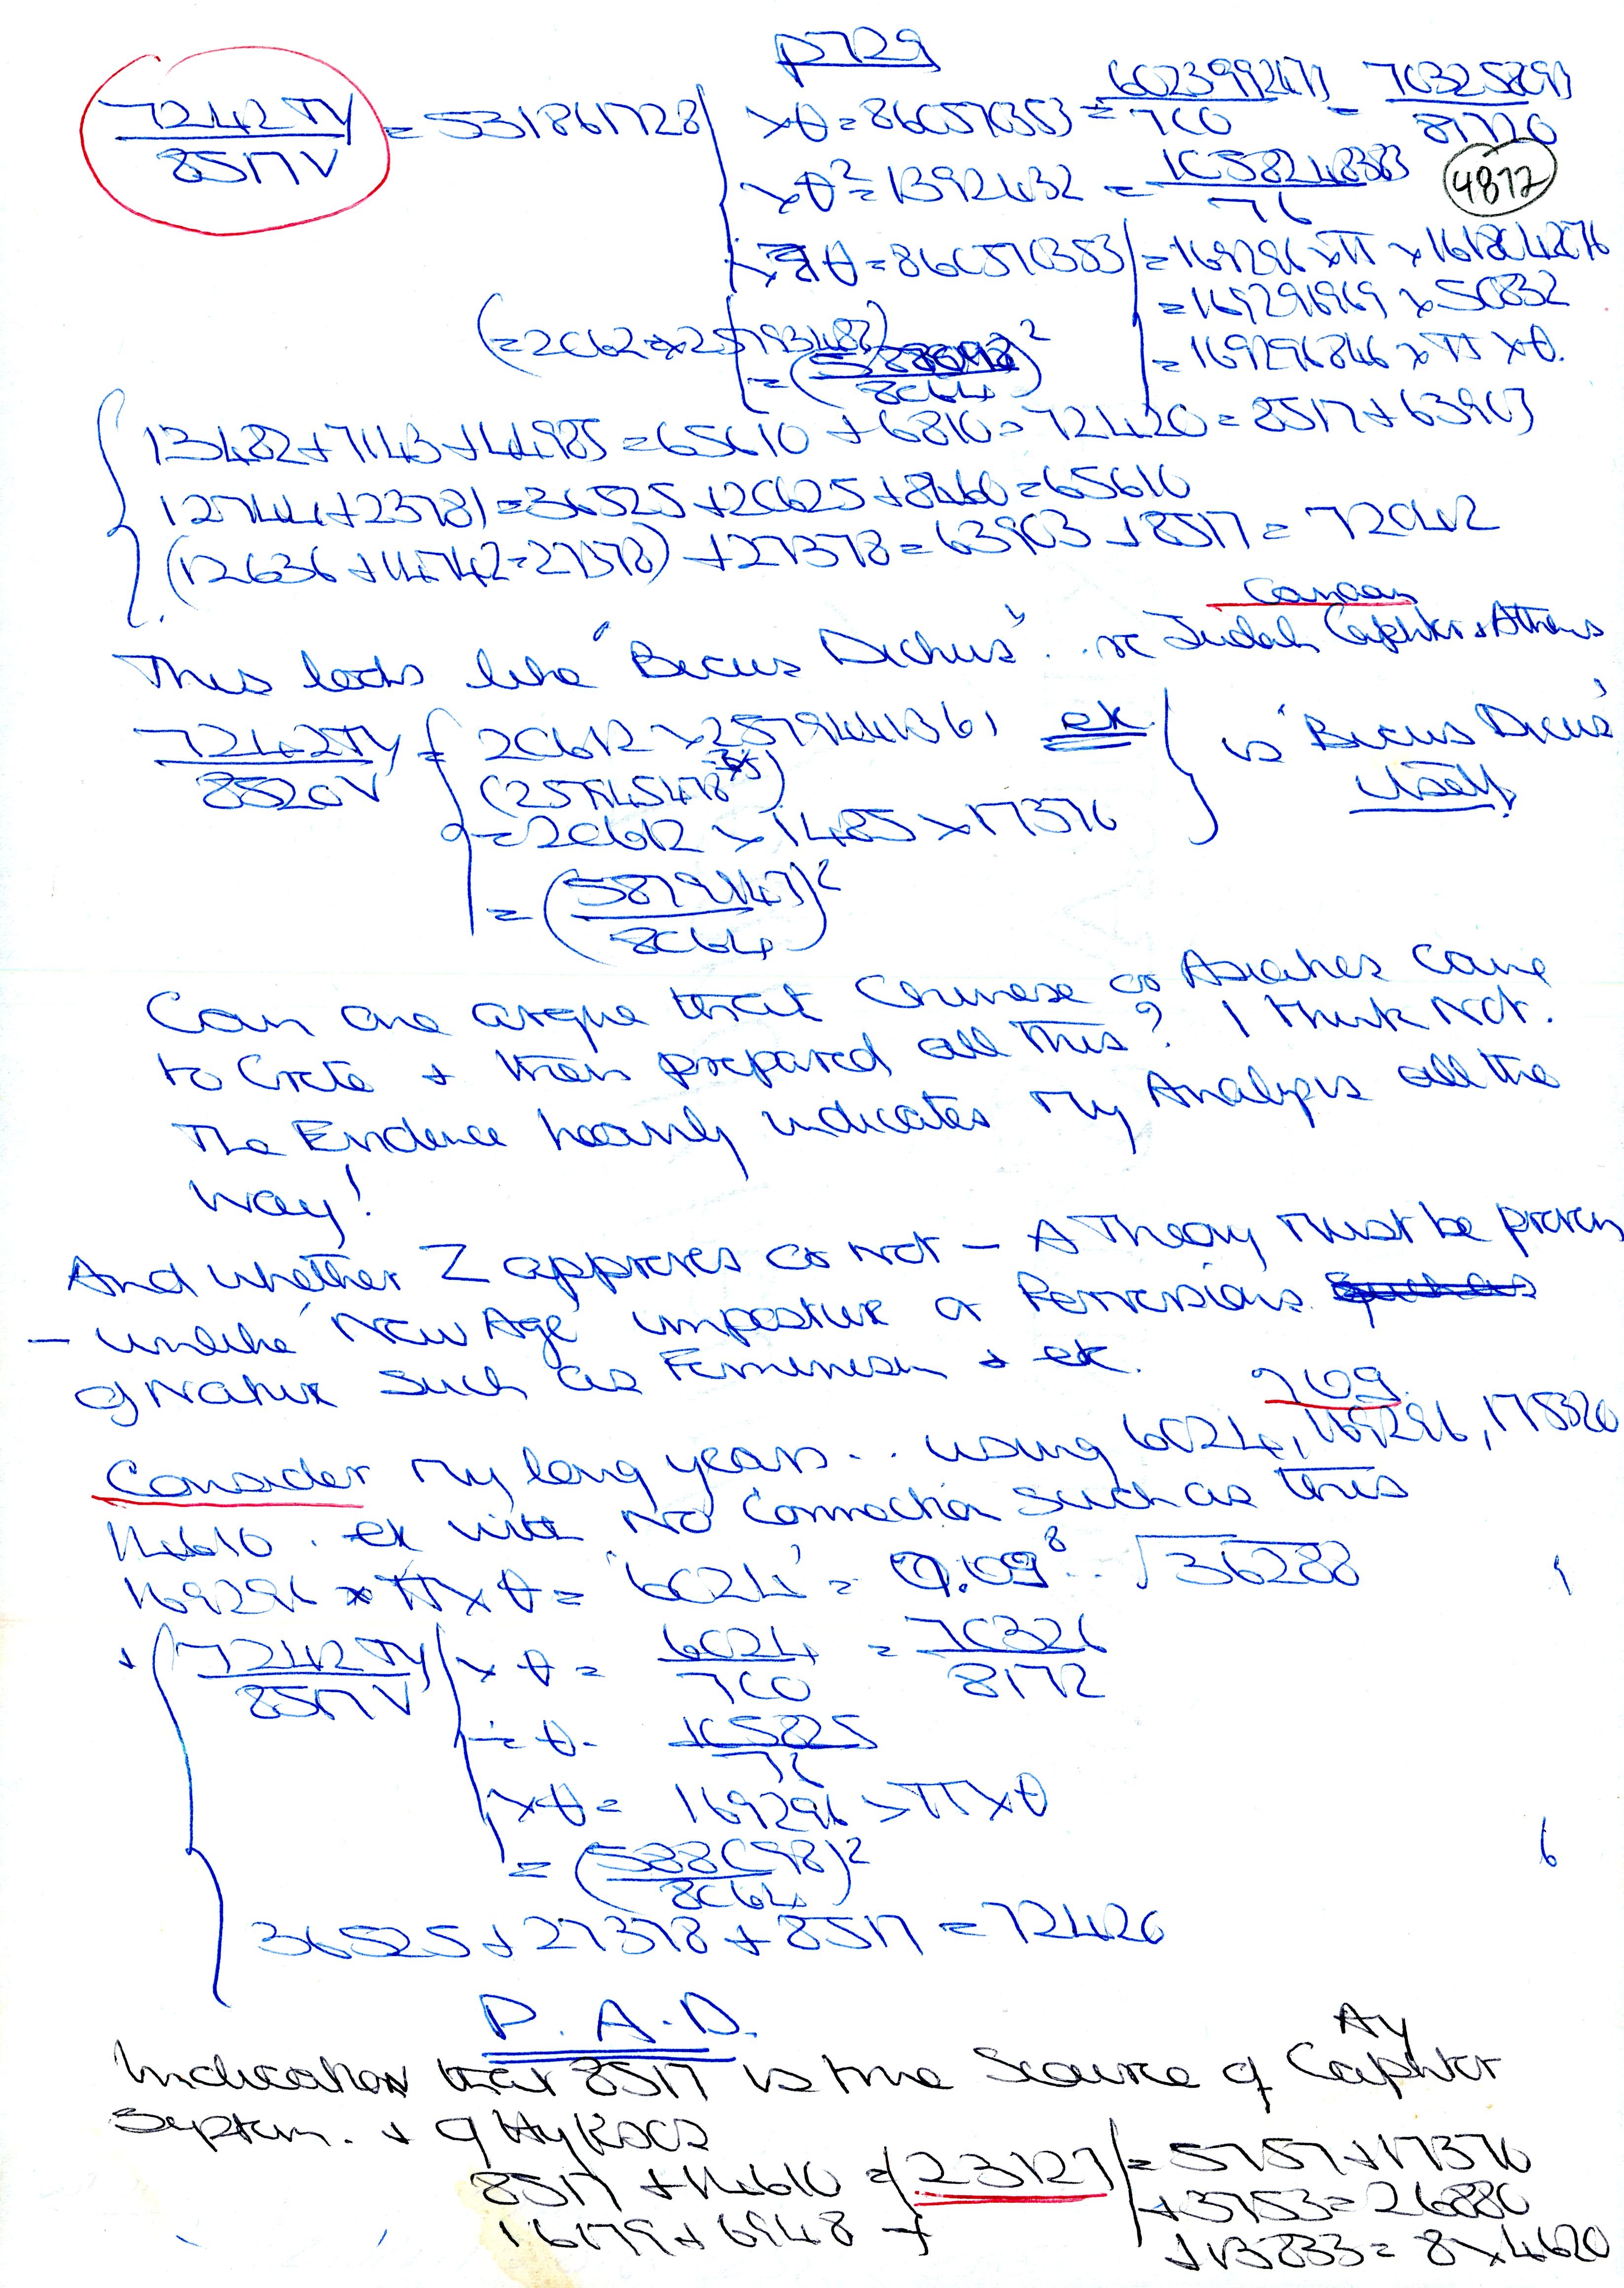 p729
7242 TY / 8517 V = 531861728
× θ = 860570353 = 602399247 / 700 = 70325897 / 81720
4872
× θ² = 1392432 = 1058248383 / 76
× θ = 860570353 = 169296 × π × 1618042076
= 169291969 × 50832
(= 2062 × 25793482)
= (588098 / 8064)²
= 169296846 × π × θ.
13482 + 7143 + 44985 = 65610 + 6810 = 72420 = 8517 + 63903
12744 + 23781 = 36525 + 20625 + 8460 = 65610
(12636 + 14742 = 27378) + 27378 = 63903 + 8517 = 72042
Canaan
This looks like "Becus Dichus" .. re Judah Caphtor & Athens
7242 TY / 8520 V = 20612 × 2579441361 ek
is 'Becus Dicus'
itself!
= 20612 × 1485 × 17376
= (5879147 / 8064)²
Can one argue that Chinese or Asiatics came
to Crete + then prepared all this? I think Not.
The Evidence heavily indicates My Analysis all the
way!
And whether Z approves or not - A Theory Must be proven
- unlike 'New Age' imposture or Perversions
of Nature such as Feminism + ek.
709
Consider My long years .. using 6024, 169296, 178320
14610 . ek with No Connection such as this
169296 × π × θ = '6024' = 0.09⁸ .. √36288
+ 7242 TY / 8517 V × θ = 6024 / 700 = 70326 / 8172
÷ θ = 105825 / 76
× θ = 169296 × π × θ
= (588098 / 8064)²
36525 + 27378 + 8517 = 72420
P. A. D.
Ay
Indication that 8517 is true Source of Caphtor
System. + of Hyksos
8517 + 14610 = 23127 = 5757 + 17370
16179 + 6948 +
+ 3753 = 26880
+ 13833 = 8 × 4620